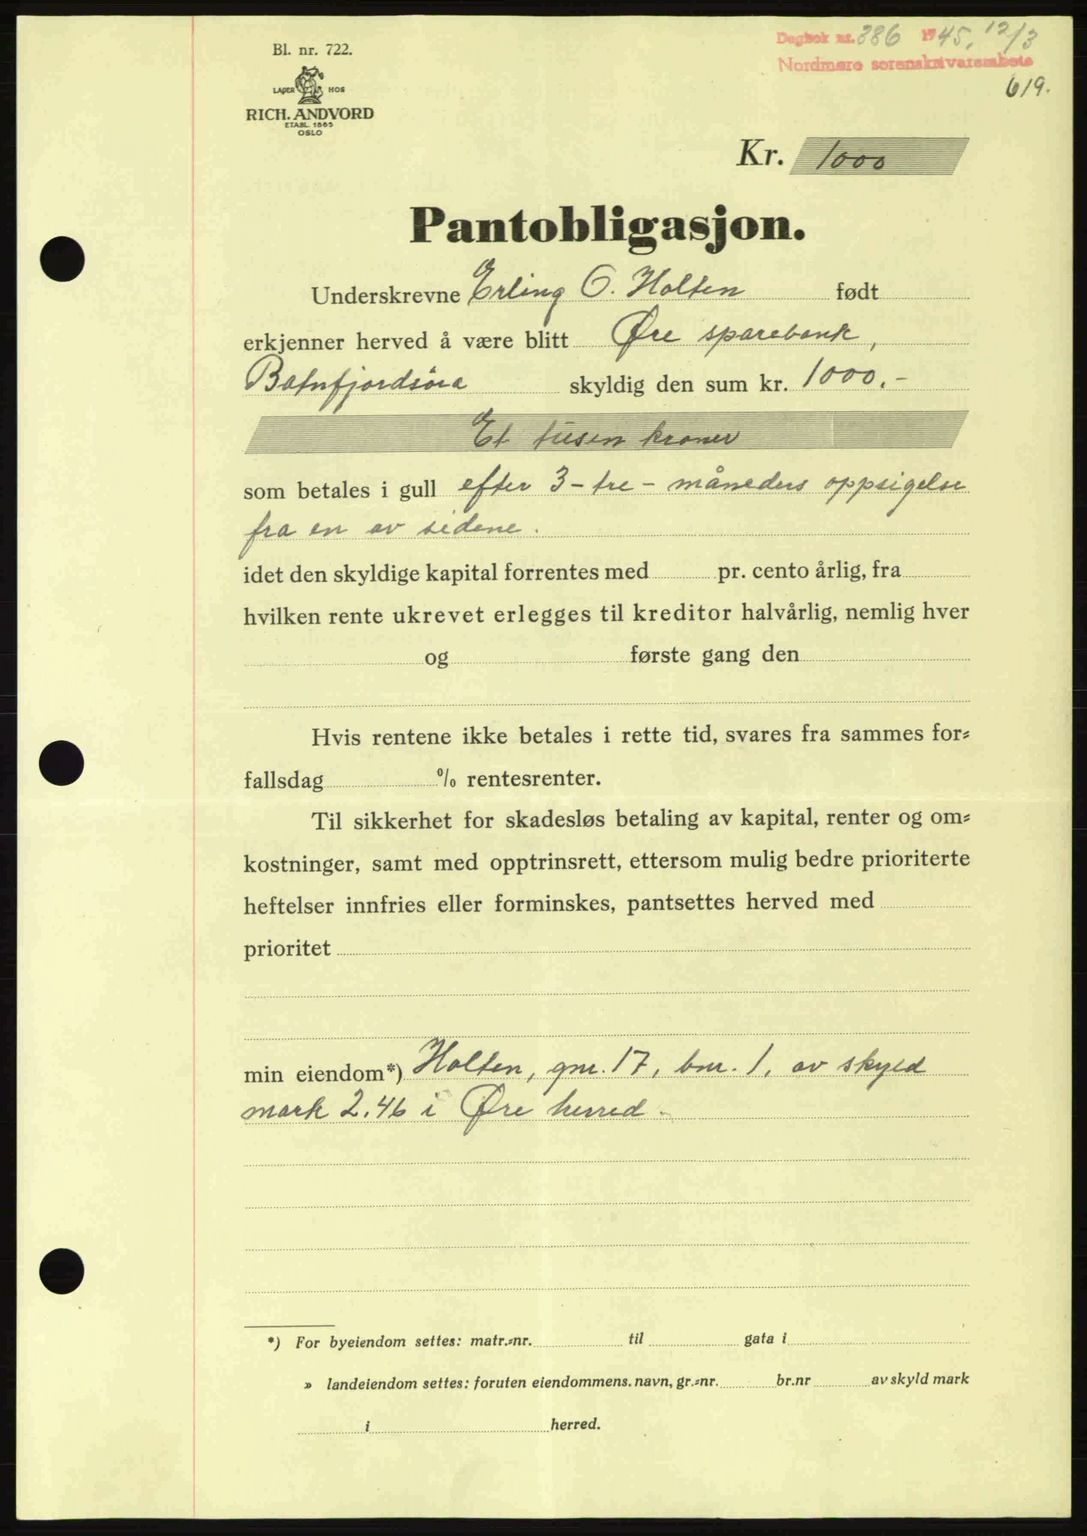 Bl. nr. 722.
LAGER HOS
RICH. ANDVORD
ETABL. 1865
OSLO
Dagbok nr. 386 1945, 12/3
Nordmøre sorenskriverembete
619.
Kr. 1000
Pantobligasjon.
Underskrevne Erling O. Holten født
erkjenner herved å være blitt Øre sparebank,
Batnfjordsøra skyldig den sum kr. 1000.-
Et tusen kroner
som betales i gull efter 3 - tre - måneders oppsigelse
fra en av sidene.
idet den skyldige kapital forrentes med pr. cento årlig, fra
hvilken rente ukrevet erlegges til kreditor halvårlig, nemlig hver
og første gang den
Hvis rentene ikke betales i rette tid, svares fra sammes for-
fallsdag % rentesrenter.
Til sikkerhet for skadesløs betaling av kapital, renter og om-
kostninger, samt med opptrinsrett, ettersom mulig bedre prioriterte
heftelser innfries eller forminskes, pantsettes herved med
prioritet
min eiendom*) Holten, gnr. 17, bnr. 1, av skyld
mark 2.46 i Øre herred.
*) For byeiendom settes: matr.-nr. til gata i
» landeiendom settes: foruten eiendommens. navn, gr.-nr. br.nr av skyld mark
i herred.